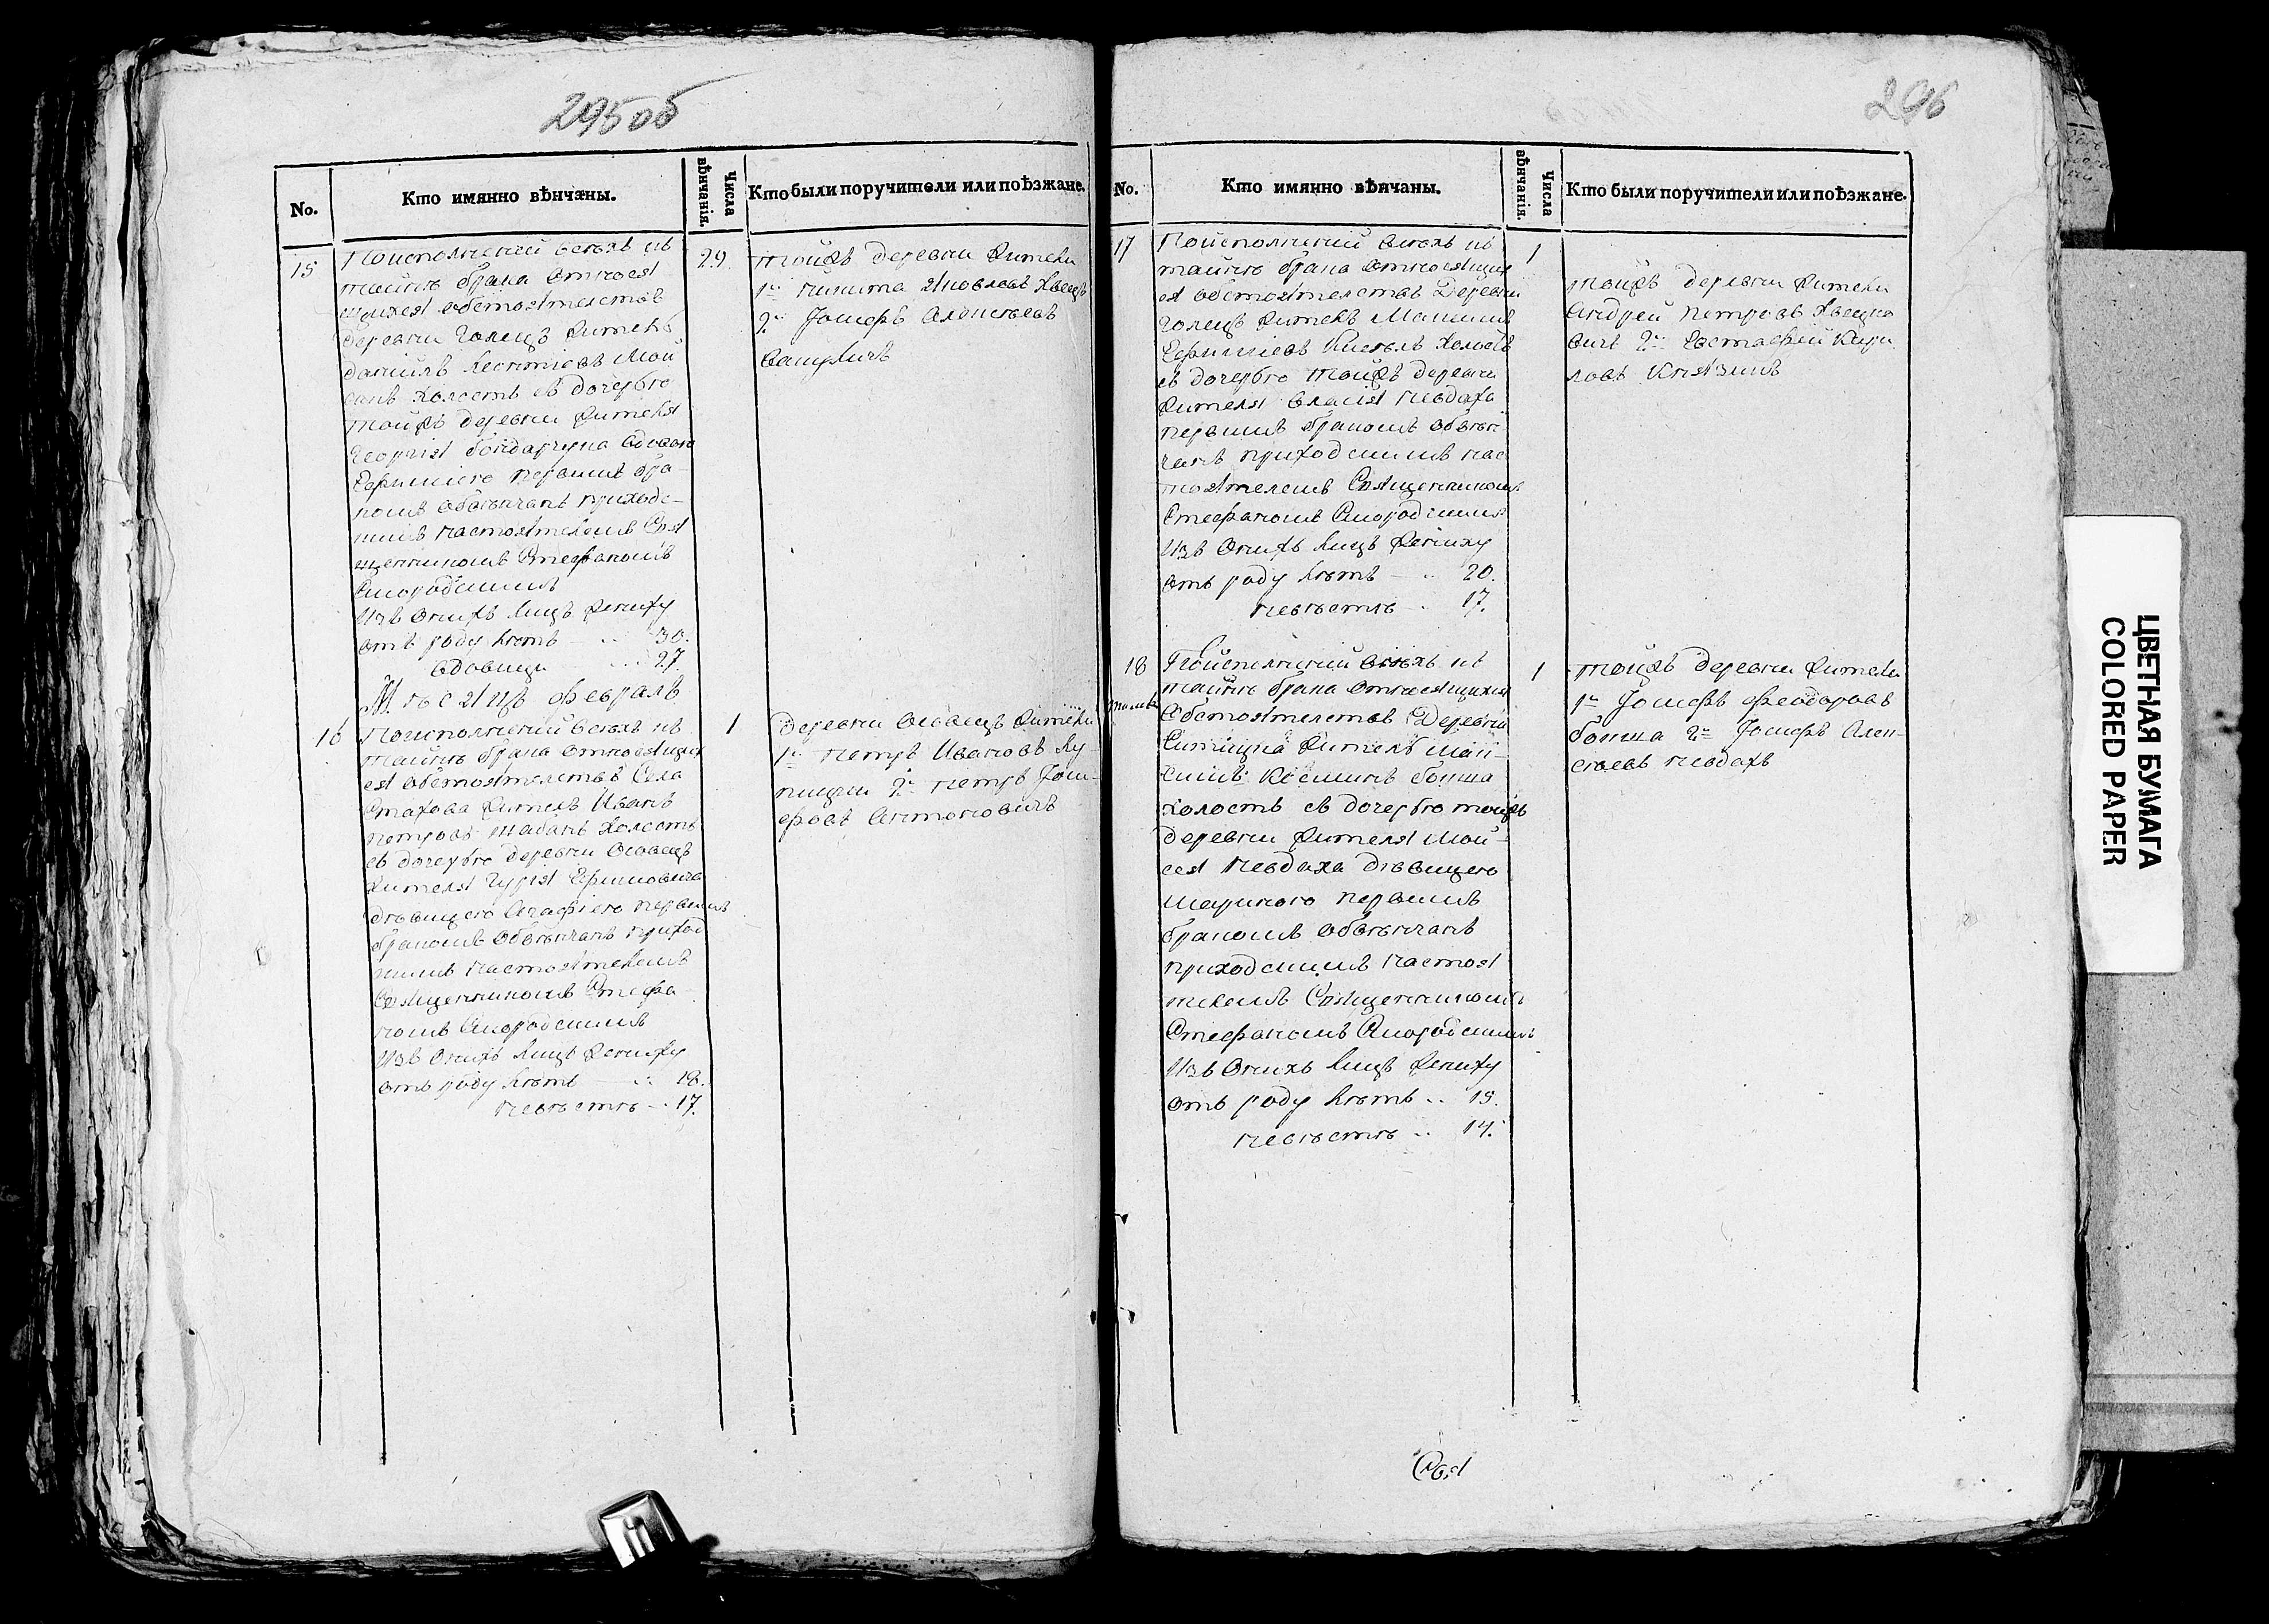 295об
No.
Кто имянно вѣнчаны.
Числа
вѣнчанія.
Кто были поручители или поѣзжане.
15
Поисполненiи всѣхъ къ
тайнѣ брака относя
щихся обстоятелствъ
деревни Голецъ житель
данiилъ Леонтiевъ Мой
сикъ холостъ съ дочерью
тойжъ деревни жителя
Георгiя бондарчука вдовою
Ефимiею первымъ бра-
комъ обвѣнчанъ приход-
кимъ настоятелемъ Свя
щенникомъ Стефаномъ
Смородскимъ
Изъ оныхъ лицъ жениху
отъ роду лѣтъ 30.
вдовицы 27.
29
тойжъ деревни жители
1й никита Яковлевъ
2й Iосифъ Алексѣевъ
Мѣсяцъ февраль
16
Поисполненiи всѣхъ къ
тайнѣ брака относящих
ся обстоятелствъ Села
Стахова житель Иванъ
петровъ холостъ
съ дочерью деревни Осовецъ
жителя Гурiя Ефимовича
дѣвицею Агафiею первымъ
бракомъ обвѣнчанъ приход
скимъ настоятелемъ
Священникомъ Стефа-
номъ Смородскимъ
Изъ оныхъ лицъ жениху
отъ роду лѣтъ 18.
невѣстѣ 17.
1
деревни Осовецъ жители
1й петръ Ивановъ Лу-
2й петръ Iоси-
фовъ Антоновичъ
296
No.
Кто имянно вѣнчаны.
Числа
вѣнчанія.
Кто были поручители или поѣзжане.
17
Поисполненiи всѣхъ къ
тайнѣ брака относящих
ся обстоятелствъ Деревни
Голецъ житель Максимъ
Ефимiевъ холостъ
съ дочерью тойжъ деревни
жителя невдаха
первымъ бракомъ обвѣн
чанъ приходскимъ нас
тоятелемъ Священникомъ
Стефаномъ Смородскимъ
Изъ оныхъ лицъ жениху
отъ роду лѣтъ 20.
невѣстѣ 17.
1
тойжъ деревни жители
Андрей петровъ Хвецко
вичъ 2й Евстафiй Кири
ловъ Князикъ
18
Поисполненiи всѣхъ къ
тайнѣ брака относящихся
Обстоятелствъ Деревни
житель Мак-
симъ Косминъ бокша
холостъ съ дочерью тойжъ
деревни жителя Мой-
сея невдаха дѣвицею
первымъ
бракомъ обвѣнчанъ
приходскимъ настоя
телемъ Священникомъ
Стефаномъ Смородскимъ
Изъ оныхъ лицъ жениху
отъ роду лѣтъ 19.
невѣстѣ 17.
1
тойжъ деревни жители
1й Iосифъ Феодоровъ
бокша 2й Iосифъ Алек-
сѣевъ невдахъ
Свя
ЦВЕТНАЯ БУМАГА
COLORED PAPER